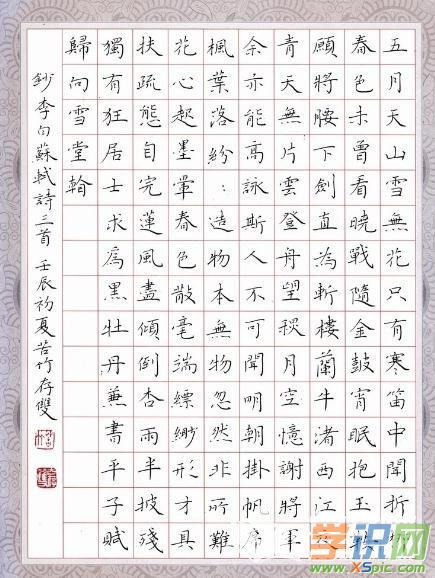 五月天山雪無花只有寒笛中聞折
春色未曾看曉戰隨金鼓宵眠抱玉
願將腰下劍直為斬樓蘭牛渚西江夜
青天無片雲登舟望秋月空憶謝將軍
余亦能高詠斯人不可聞明朝掛帆席
楓葉落紛：造物本無物忽然非所難
花心起墨暈春色散毫端縹緲形才具
扶疏態自完蓮風盡傾倒杏雨半披殘
獨有狂居士求爲黑牡丹兼書平子賦
歸向雪堂
鈔李白蘇軾詩三首 壬辰初夏苦竹存雙
学识网
XSpic.com